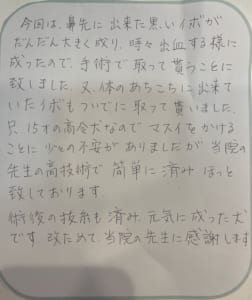 今回は、鼻先に出来た黒いイボが
だんだん大きく成り、時々出血する様に
成ったので、手術で取って貰うことに
致しました。又、体のあちこちに出来て
いたイボもついでに取って貰いました。
只、15才の高令犬なのでマスイをかける
ことに少しの不安がありましたが当院の
先生の高技術で簡単に済みほっと
致しております。
術後の抜糸も済み元気に成った犬
です。改ためて、当院の先生に感謝します